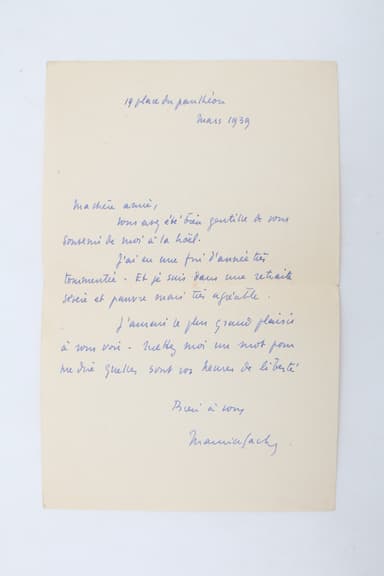 19 place du panthéon
Mars 1939
Ma chère amie,
vous avez été bien gentille de vous
souvenir de moi à la Noël.
J'ai eu une fin d'année très
tourmentée - Et je suis dans une retraite
et pauvre mais très agréable.
J'aurai le plus grand plaisir
à vous voir - mettez moi un mot pour
me dire quelles sont vos heures de liberté
Bien à vous
Maurice Sachs